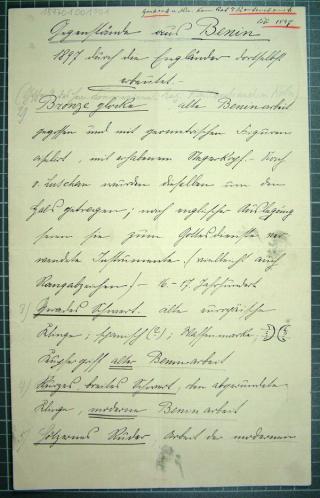 Gegenstände aus Benin
1897 durch die Engländer dortselbst
erbeutet.
Bronze glocke alte Beninarbeit
gegossen und mit geometrischen Figuren
verziert, mit erhabenem Negerkopf. Nach
v. Luschan wurden dieselben um den
Hals getragen; nach englischer Auslegung
seien sie zum Gottesdienste ver
wendete Instrumente. (vielleicht auch
Rangabzeichen) - 16. - 17. Jahrhundert
3) Gerades Schwert. alte europäische
Klinge; spanisch (?); Waffenmarke,
Griff alter Beninarbeit
4) Kurzes breites Schwert, oben abgerundete
Klinge, moderne Benin arbeit
5) Hölzernes Ruder Arbeit der modernen